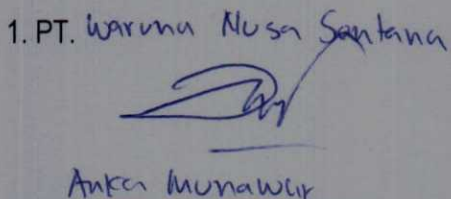 1. PT. Waruna Nusa Sentana
Anka Munawar